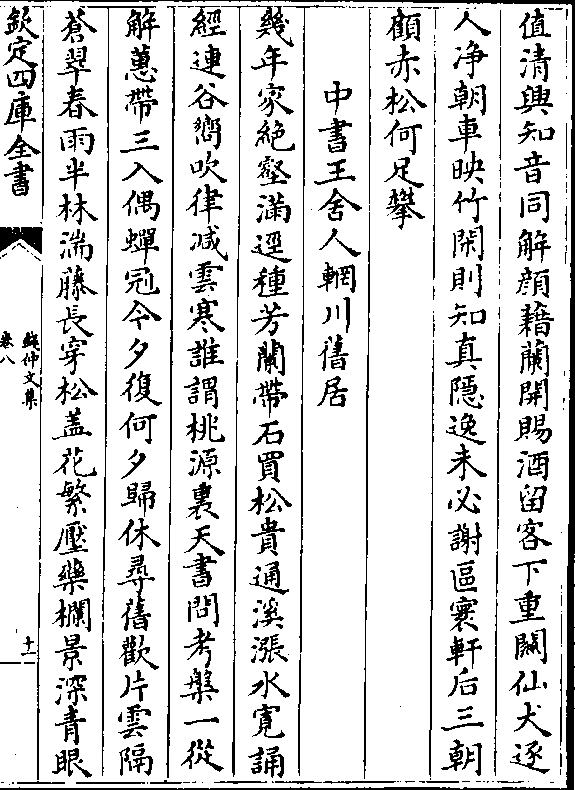 值清興知音同解顔藉蘭開賜酒留客下重闗仙犬逐
人净朝車映竹閑則知真隱逸未必謝區寰軒后三朝
顧赤松何足攀
中書王舍人輞川舊居
幾年家絶壑滿逕種芳蘭帶石買松貴通溪漲水寛誦
經連谷嚮吹律减雲寒誰謂桃源裏天書問考槃一從
解蕙帶三入偶蟬冠今夕復何夕歸休尋舊歡片雲隔
蒼翠春雨半林湍藤長穿松盖花繁壓藥欄景深青眼
欽定四庫全書
錢仲文集
卷八
十一